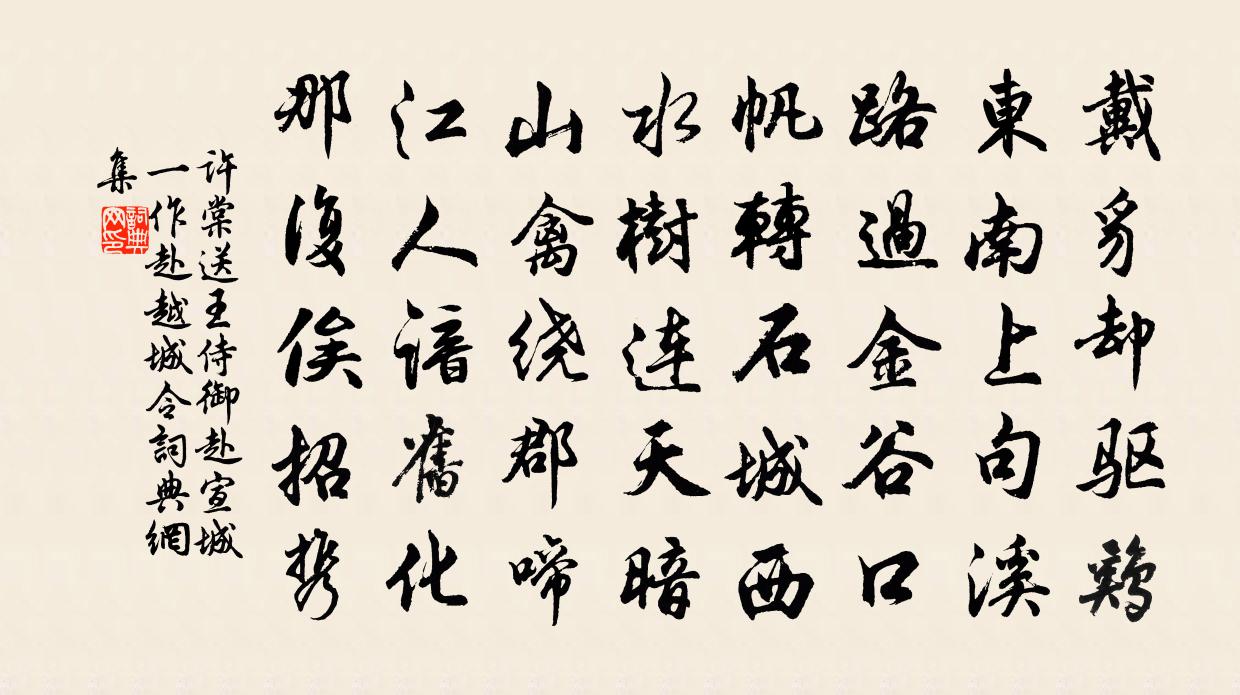 戴豸却驱鷄
東南上句溪
路過金谷口
帆轉石城西
水樹连天暗
山禽绕郡啼
江人谙舊化
那復俟招携
许棠送王侍御赴宣城
一作赴越城令詞典網
集
詞典网印